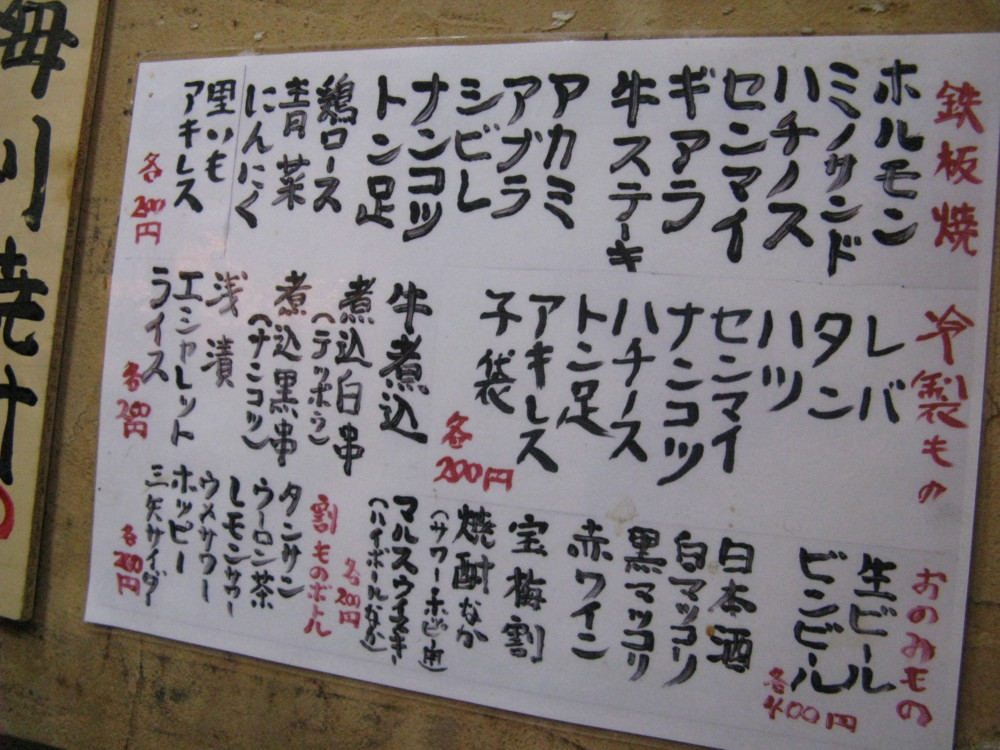 鉄板焼
ホルモン
ミノサンド
ハチノス
センマイ
ギアラ
牛ステーキ
アカミ
アブラ
シビレ
ナンコツ
トン足
鶏ロース
青菜
にんにく
里いも
アキレス
各200円
冷製もの
レバ
タン
ハツ
センマイ
ナンコツ
ハチノス
トン足
アキレス
子袋
各200円
牛煮込
煮込白串
(テッポウ)
煮込黒串
(ナンコツ)
浅漬
エシャレット
ライス
各200円
おのみもの
生ビール
ビンビール
各400円
日本酒
白マッコリ
黒マッコリ
赤ワイン
宝梅割
焼酎なか
マルスウイスキー
(ハイボールなか)
各200円
割ものボトル
タンサン
ウーロン茶
レモンサワー
ウメサワー
ホッピー
三矢サイダー
各200円